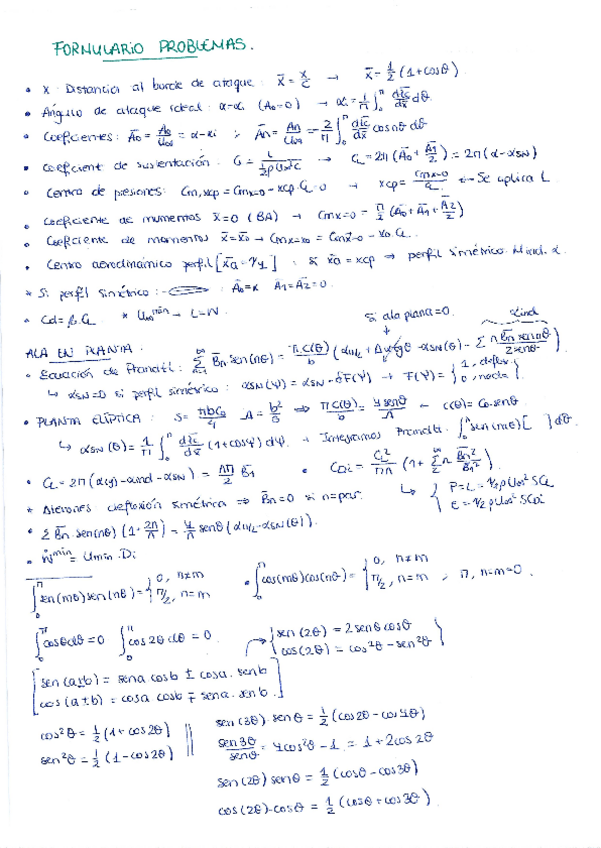 FORMULARIO PROBLEMAS.
• x : Distancia al borde de ataque : x̄ = x/c → x̄ = 1/2 (1+cosθ)
• Ángulo de ataque ideal : α=αi (A₀=0) → αi = 1/π ∫₀^π dz̄c/dx̄ dθ
• Coeficientes : Ā₀ = A₀/U∞ = α-αi ; Ān = An/U∞ = -2/π ∫₀^π dz̄c/dx̄ cosnθ dθ
• Coeficient de sustentación : CL = L / 1/2ρU∞²c → CL = 2π (Ā₀ + Ā₁/2) = 2π(α-αSN)
• Centro de presiones : Cm,xcp = Cmx=0 - xcp.CL = 0 → xcp = Cmx=0/CL ← Se aplica L
• Coeficiente de momentos x̄=0 (BA) → Cmx=0 = π/2 (Ā₀+Ā₁+Ā₂/2)
• Coeficiente de momentos x̄=x̄₀ → Cmx=x₀ = Cmx̄=0 - x₀.CL
• Centro aerodinámico perfil [x̄a = 1/4] : si x̄a = xcp → perfil simétrico
* Si perfil simétrico : Ā₀=α Ā₁=Ā₂=0.
• Cd = β.CL * U∞min → L=W
Si ala plana = 0.
ALA EN PLANTA.
• Ecuación de Prandtl : Σ B̄n sen(nθ) = πc(θ)/b (αu/2 + - αSN(θ) - Σ n B̄n sen nθ / 2 senθ)
↳ αSN=0 si perfil simétrico : αSN(Ψ) = αSN - δF(Ψ) → F(Ψ) = { 1, deflex. 0, nada }
• PLANTA ELÍPTICA : S = πbC₀/4 Λ = b²/S ⇒ πc(θ)/b = 4senθ/Λ ← c(θ) = C₀.senθ
↳ αSN(θ) = 1/π ∫₀^π dz̄c/dx̄ (1+cosΨ) dΨ. • Integramos Prandtl : ∫₀^π sen(mθ) [ ] dθ
• CL = 2π(α(y) - αind - αSN) = Λπ/2 B̄₁ • CDi = CL²/πΛ (1+ Σ n B̄n²/B̄₁²)
* Alerones deflexión simétrica ⇒ B̄n=0 si n=par. ↳ { P=L = 1/2ρU∞²SCL
• Σ B̄n sen(nθ) (1+2n/Λ) = 4/Λ senθ (αu/2 - αSN(θ)).
• Ẇmin = Umin.Di
∫₀^π sen(mθ)sen(nθ) = { 0, n≠m π/2, n=m • ∫₀^π cos(mθ)cos(nθ) = { 0, n≠m π/2, n=m , π, n=m=0.
∫₀^π cosθdθ = 0 ∫₀^π cos2θdθ = 0. → { sen(2θ) = 2senθcosθ cos(2θ) = cos²θ - sen²θ }
[ sen(a±b) = sena cosb ± cosa. senb
cos(a±b) = cosa cosb ∓ sena. senb ]
cos²θ = 1/2 (1+cos2θ)
sen²θ = 1/2 (1-cos2θ)
sen(3θ).senθ = 1/2 (cos2θ - cos4θ)
sen3θ/senθ = 4cos²θ - 1 = 1+2cos2θ
sen(2θ)senθ = 1/2 (cosθ - cos3θ)
cos(2θ).cosθ = 1/2 (cosθ + cos3θ)